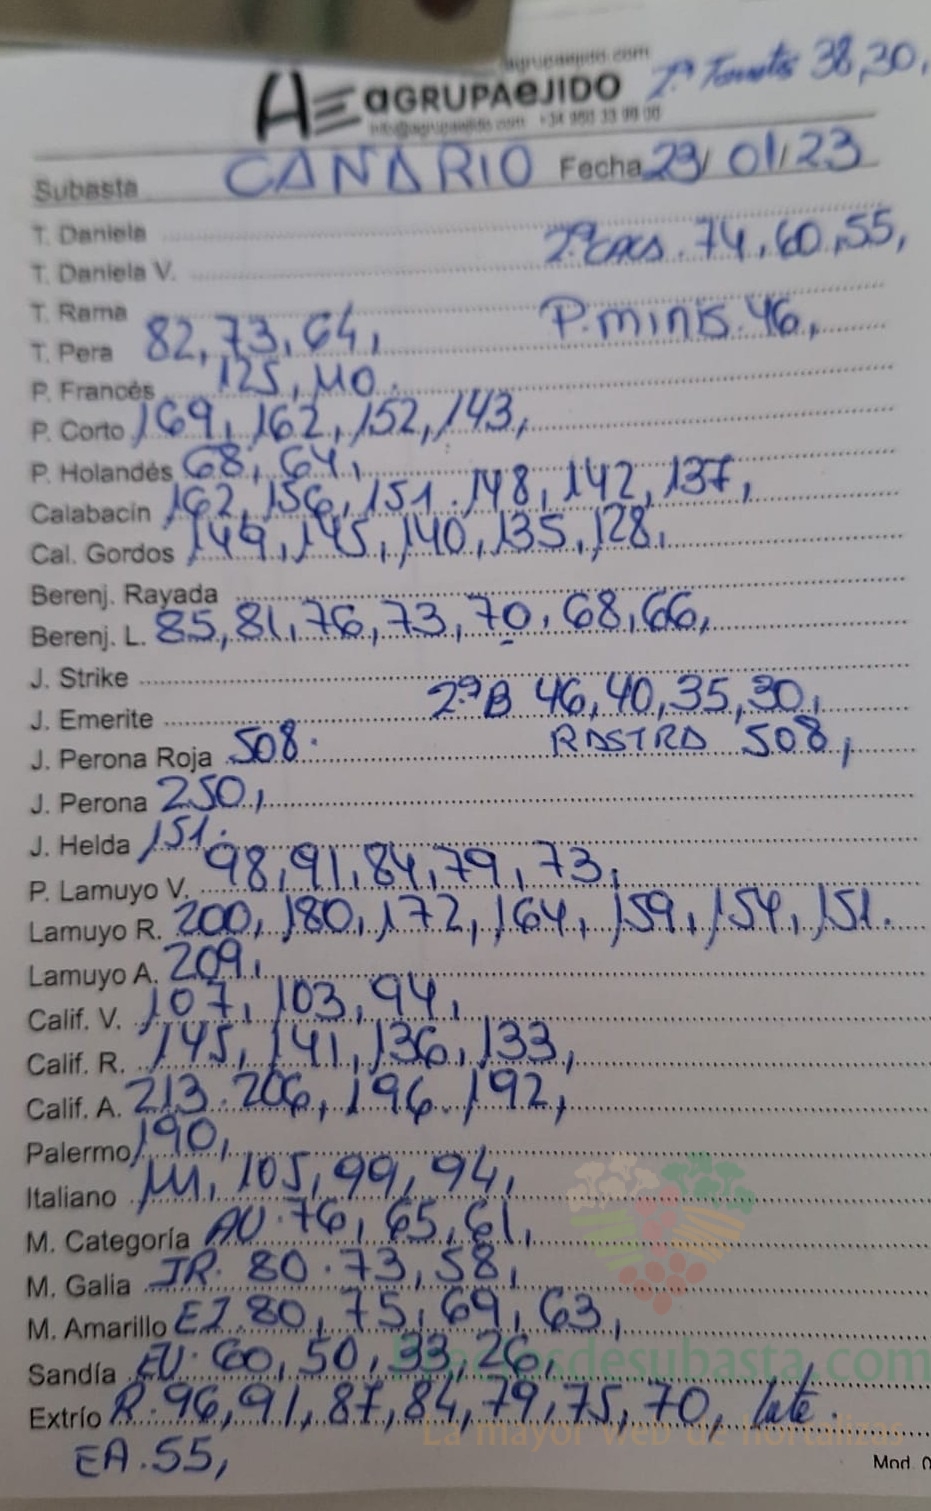 agrupaejido.com
2ª Tomate 38,30,
AGRUPAEJIDO
info@agrupaejido.com +34 950 33 99 00
Subasta CANARIO Fecha 23/01/23
T. Daniela
2ª CAL. 74,60,55,
T. Daniela V.
T. Rama
P.minis.46,
T. Pera 82,73,64,
P. Francés 125,110.
P. Corto 169,162,152,143,
P. Holandés 68,64,
Calabacín 162,156,151.148,142,137,
Cal. Gordos 149,145,140,135,128,
Berenj. Rayada
Berenj. L. 85,81,76,73,70,68,66,
J. Strike
2ªB 46,40,35,30,
J. Emerite
J. Perona Roja 508. RASTRA 508,
J. Perona 250,
J. Helda 151.
P. Lamuyo V. 98,91,84,79,73,
Lamuyo R. 200,180,172,164,159,154,151.
Lamuyo A. 209,
Calif. V. 107,103,94,
Calif. R. 145,141,136,133,
Calif. A. 213.206,196.192,
Palermo 190,
Italiano 111,105,99,94,
M. Categoría AU.76,65,61,
M. Galia IR.80.73,58,
M. Amarillo EI.80,75,69,63,
Sandía EU.60,50,33,26,
Extrío R.96,91,87,84,79,75,70, late.
EA.55,
Preciosdesubasta.com
La mayor web de hortalizas
Mod. 0